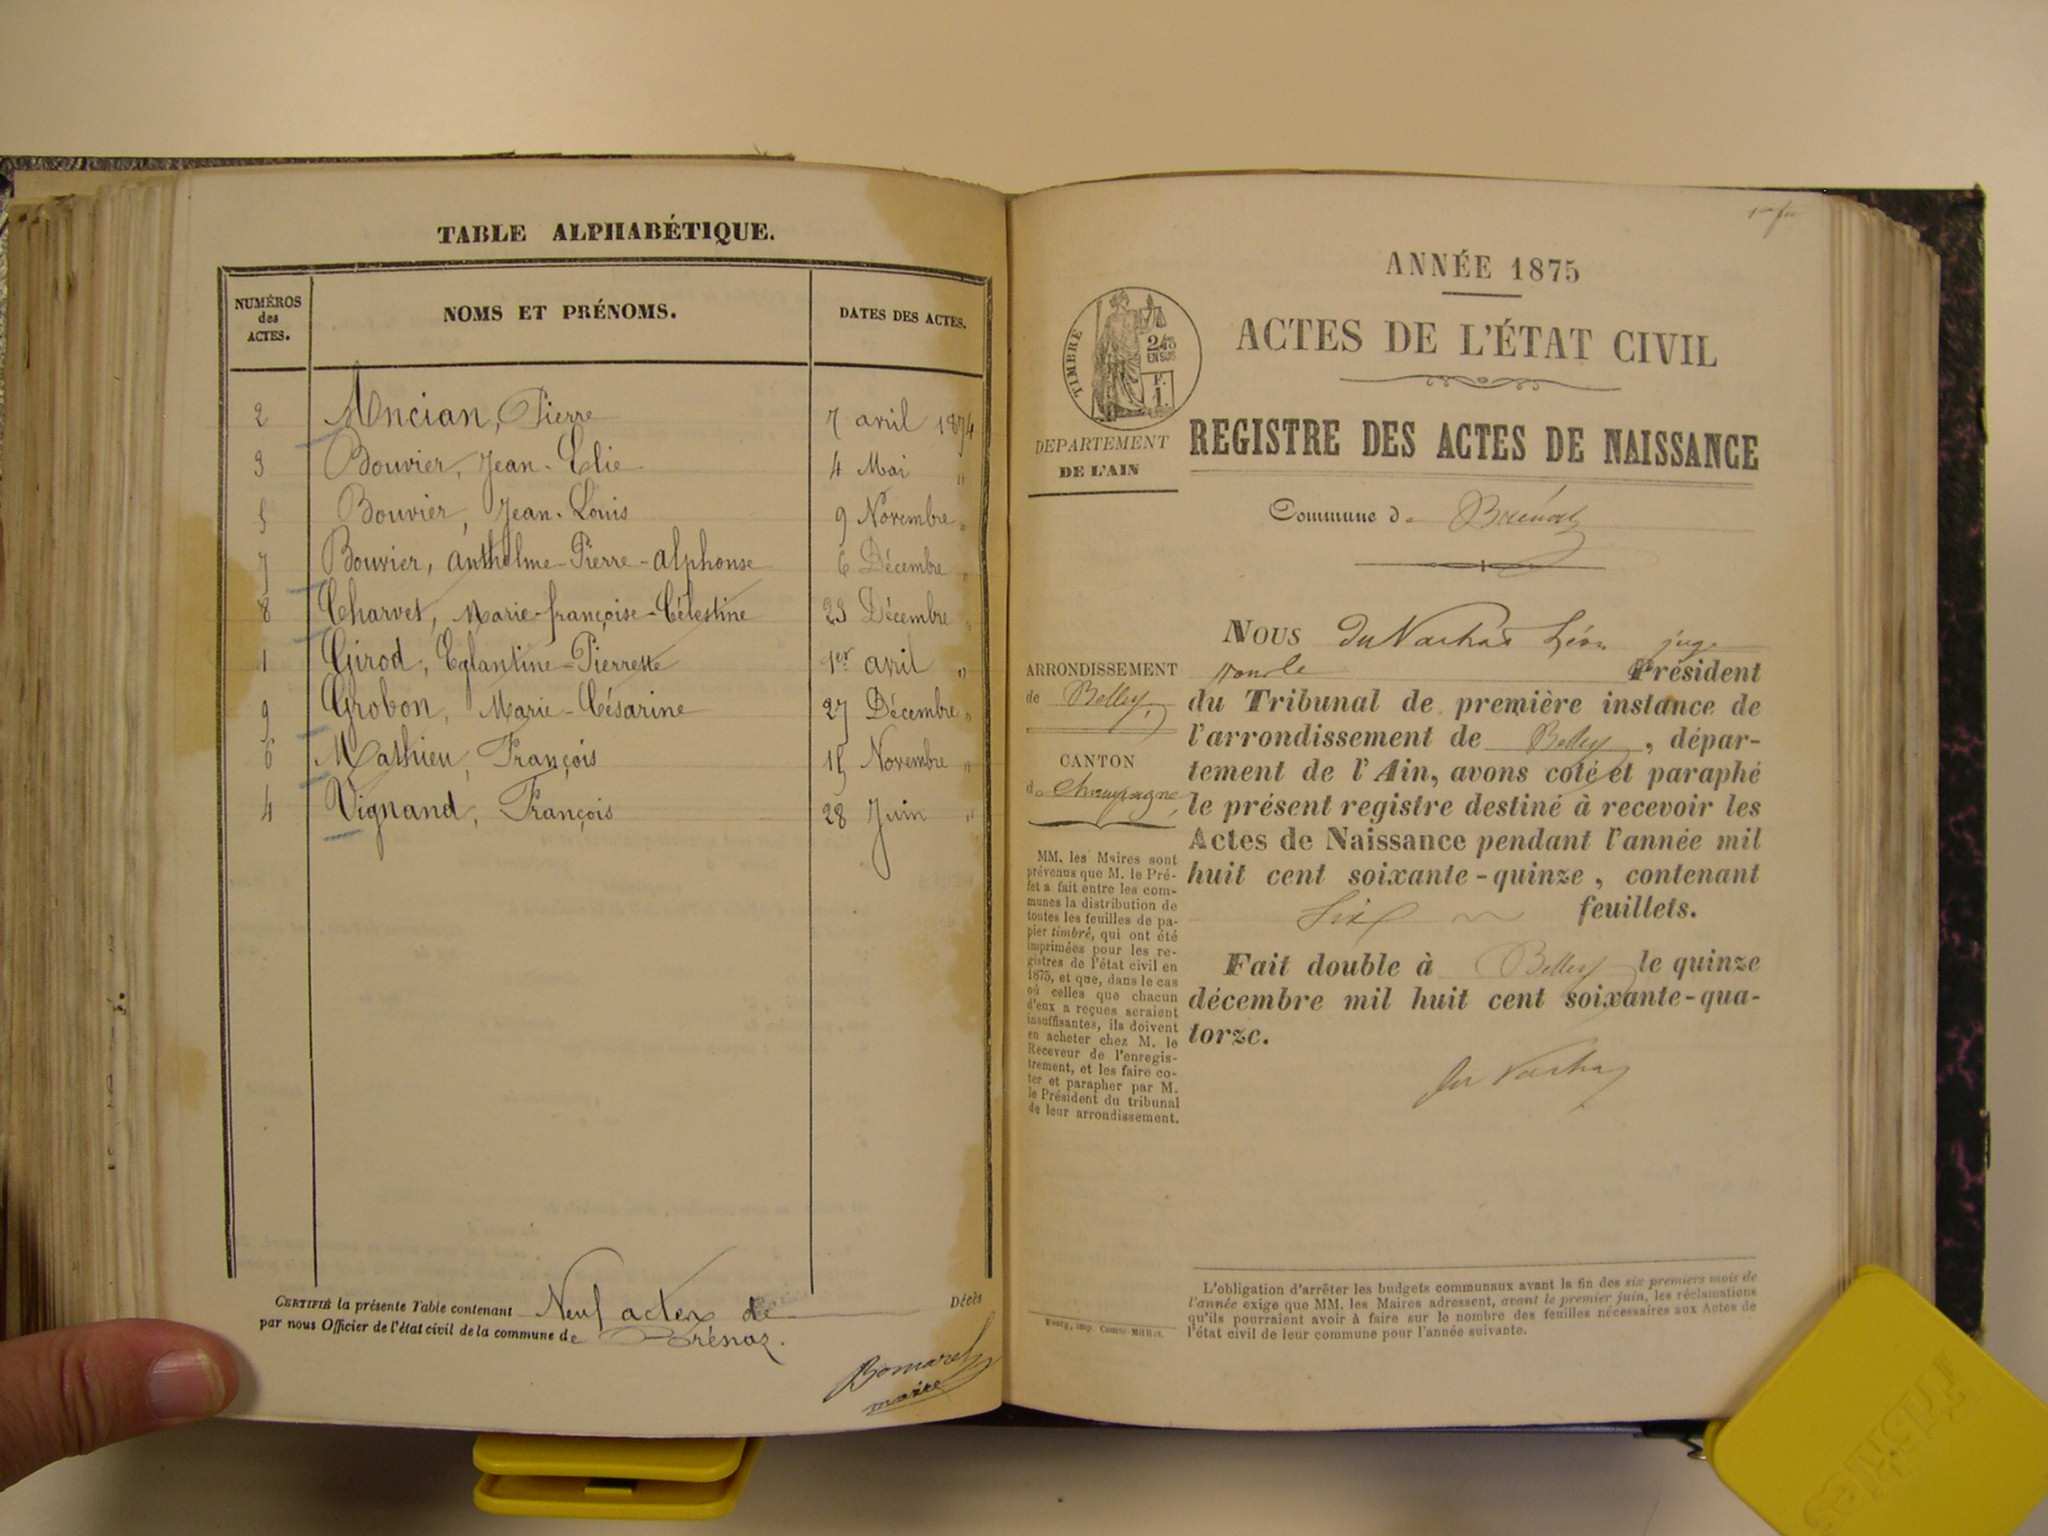 TABLE ALPHABÉTIQUE.
NUMÉROS des ACTES.
NOMS ET PRÉNOMS.
DATES DES ACTES.
2 Ancian, Pierre 7 avril 1874
3 Bouvier, Jean-Elie 4 Mai "
5 Bouvier, Jean-Louis 9 Novembre "
7 Bouvier, Anthelme-Pierre-Alphonse 6 Décembre "
8 Charvet, Marie-françoise-Célestine 23 Décembre "
1 Girod, Eglantine-Pierrette 1er avril "
9 Grobon, Marie-Césarine 27 Décembre "
6 Mathieu, François 15 Novembre "
4 Vignand, François 28 Juin "
CERTIFIÉ la présente Table contenant Neuf actes de Décès
par nous Officier de l'état civil de la commune de Brénaz.
maire
ANNÉE 1875
ACTES DE L'ÉTAT CIVIL
TIMBRE
2/10 EN SUS
F. 1.
DEPARTEMENT
DE L'AIN
REGISTRE DES ACTES DE NAISSANCE
Commune de Brénaz
ARRONDISSEMENT
de Belley,
CANTON
de Champagne,
MM. les Maires sont
prévenus que M. le Pré-
fet a fait entre les com-
munes la distribution de
toutes les feuilles de pa-
pier timbré, qui ont été
imprimées pour les re-
gistres de l'état civil en
1875, et que, dans le cas
où celles que chacun
d'eux a reçues seraient
insuffisantes, ils doivent
en acheter chez M. le
Receveur de l'enregis-
trement, et les faire co-
ter et parapher par M.
le Président du tribunal
de leur arrondissement.
NOUS Léon juge
pour le Président
du Tribunal de première instance de
l'arrondissement de Belley, dépar-
tement de l'Ain, avons coté et paraphé
le présent registre destiné à recevoir les
Actes de Naissance pendant l'année mil
huit cent soixante-quinze, contenant
Six feuillets.
Fait double à Belley le quinze
décembre mil huit cent soixante-qua-
torze.
L'obligation d'arrêter les budgets communaux avant la fin des six premiers mois de
l'année exige que MM. les Maires adressent, avant le premier juin, les réclamations
qu'ils pourraient avoir à faire sur le nombre des feuilles nécessaires aux Actes de
l'état civil de leur commune pour l'année suivante.